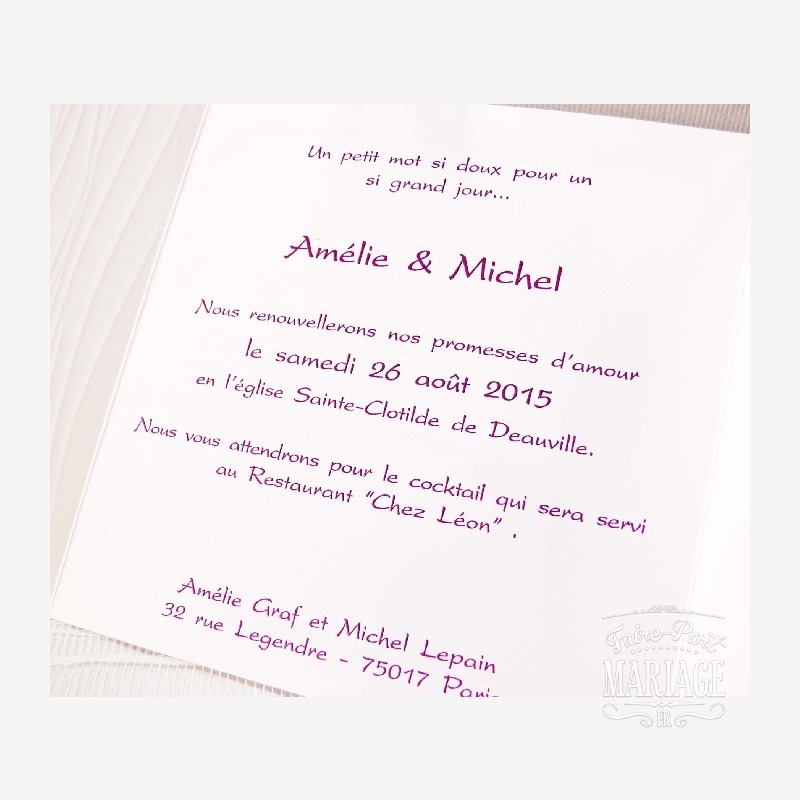 Un petit mot si doux pour un
si grand jour...
Amélie & Michel
Nous renouvellerons nos promesses d'amour
le samedi 26 août 2015
en l'église Sainte-Clotilde de Deauville.
Nous vous attendrons pour le cocktail qui sera servi
au Restaurant "Chez Léon" .
Amélie Graf et Michel Lepain
32 rue Legendre - 75017 Paris
Faire-Part
MARIAGE
FR